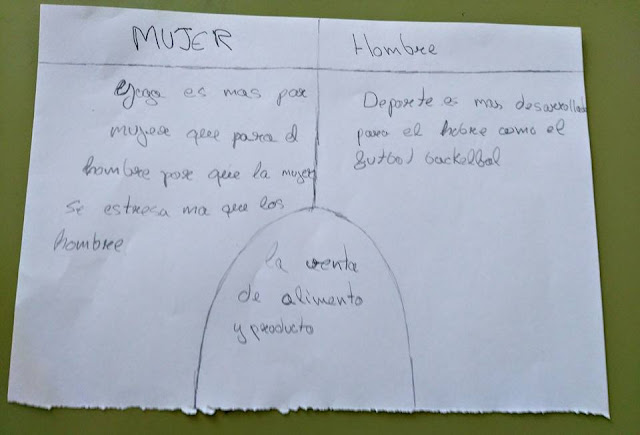 MUJER
Yoga es mas por
mujer que para el
hombre por que la mujer
se estresa ma que los
hombre
Hombre
Deporte es mas desarrollado
para el hobre como el
futbol backelbal
la venta
de alimento
y producto